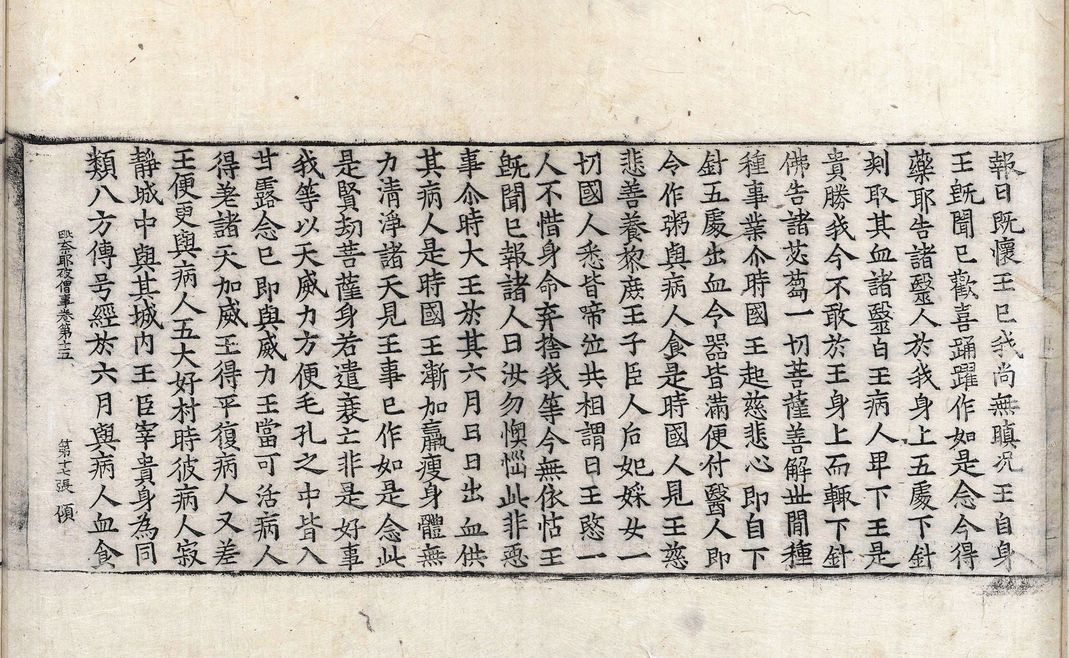 報曰既懷王已我尚無瞋况王自身
王既聞已歡喜踊躍作如是念今得
藥耶告諸醫人於我身上五處下針
刾取其血諸醫白王病人卑下王是
貴勝我今不敢於王身上而輒下針
佛告諸苾芻一切菩薩善解世間種
種事業尒時國王起慈悲心即自下
針五處出血今器皆滿便付醫人即
令作粥與病人食是時國人見王慈
悲善養黎庶王子臣人后妃婇女一
切國人悉皆啼泣共相謂曰王愍一
人不惜身命弃捨我等今無依怙王
既聞已報諸人曰汝勿懊惱此非惡
事尒時大王於其六月日日出血供
其病人是時國王漸加羸瘦身體無
力清淨諸天見王事已作如是念此
是賢劫菩薩身若遣衰亡非是好事
我等以天威力方便毛孔之中皆入
甘露念已即與威力王當可活病人
得差諸天加威王得平復病人又差
王便更與病人五大好村時彼病人寂
靜城中與其城內王臣宰貴身為同
類八方傳号經於六月與病人血食
毗奈耶破僧事卷第十五 第十七張 傾